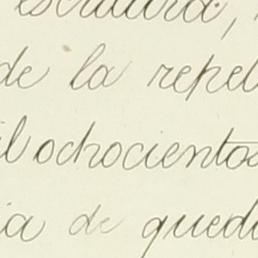 escritura,
de la repel
il ochocientos
ia de qued